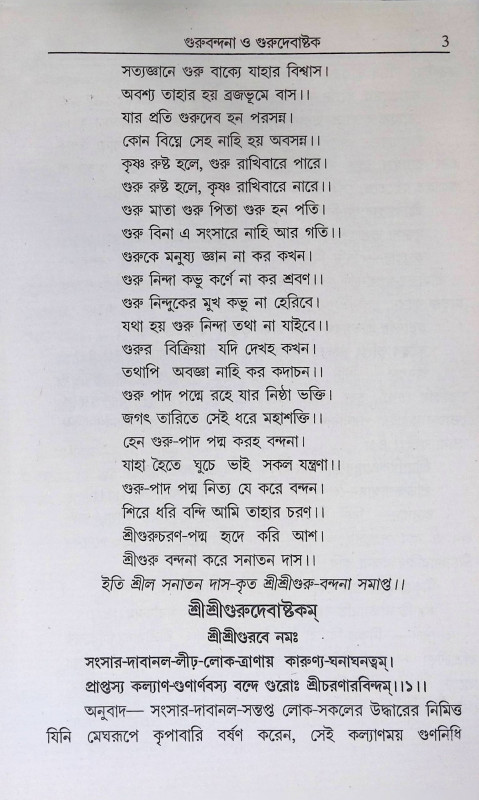 গুরুবন্দনা ও গুরুদেবাষ্টক 3
সত্যজ্ঞানে গুরু বাক্যে যাহার বিশ্বাস।
অবশ্য তাহার হয় ব্রজভূমে বাস।।
যার প্রতি গুরুদেব হন পরসন্ন।
কোন বিঘ্নে সেহ নাহি হয় অবসন্ন।।
কৃষ্ণ রুষ্ট হলে, গুরু রাখিবারে পারে।
গুরু রুষ্ট হলে, কৃষ্ণ রাখিবারে নারে।।
গুরু মাতা গুরু পিতা গুরু হন পতি।
গুরু বিনা এ সংসারে নাহি আর গতি।।
গুরুকে মনুষ্য জ্ঞান না কর কখন।
গুরু নিন্দা কভু কর্ণে না কর শ্রবণ।।
গুরু নিন্দুকের মুখ কভু না হেরিবে।
যথা হয় গুরু নিন্দা তথা না যাইবে।।
গুরুর বিক্রিয়া যদি দেখহ কখন।
তথাপি অবজ্ঞা নাহি কর কদাচন।।
গুরু পাদ পদ্মে রহে যার নিষ্ঠা ভক্তি।
জগৎ তারিতে সেই ধরে মহাশক্তি।।
হেন গুরু-পাদ পদ্ম করহ বন্দনা।
যাহা হৈতে ঘুচে ভাই সকল যন্ত্রণা।।
গুরু-পাদ পদ্ম নিত্য যে করে বন্দন।
শিরে ধরি বন্দি আমি তাহার চরণ।।
শ্রীগুরুচরণ-পদ্ম হৃদে করি আশ।
শ্রীগুরু বন্দনা করে সনাতন দাস।।
ইতি শ্রীল সনাতন দাস-কৃত শ্রীশ্রীগুরু-বন্দনা সমাপ্ত।।
শ্রীশ্রীগুরুদেবাষ্টকম্
শ্রীশ্রীগুরবে নমঃ
সংসার-দাবানল-লীঢ়-লোক-ত্রাণায় কারুণ্য-ঘনাঘনত্বম্।
প্রাপ্তস্য কল্যাণ-গুণার্ণবস্য বন্দে গুরোঃ শ্রীচরণারবিন্দম্।।১।।
অনুবাদ— সংসার-দাবানল-সন্তপ্ত লোক-সকলের উদ্ধারের নিমিত্ত
যিনি মেঘরূপে কৃপাবারি বর্ষণ করেন, সেই কল্যাণময় গুণনিধি